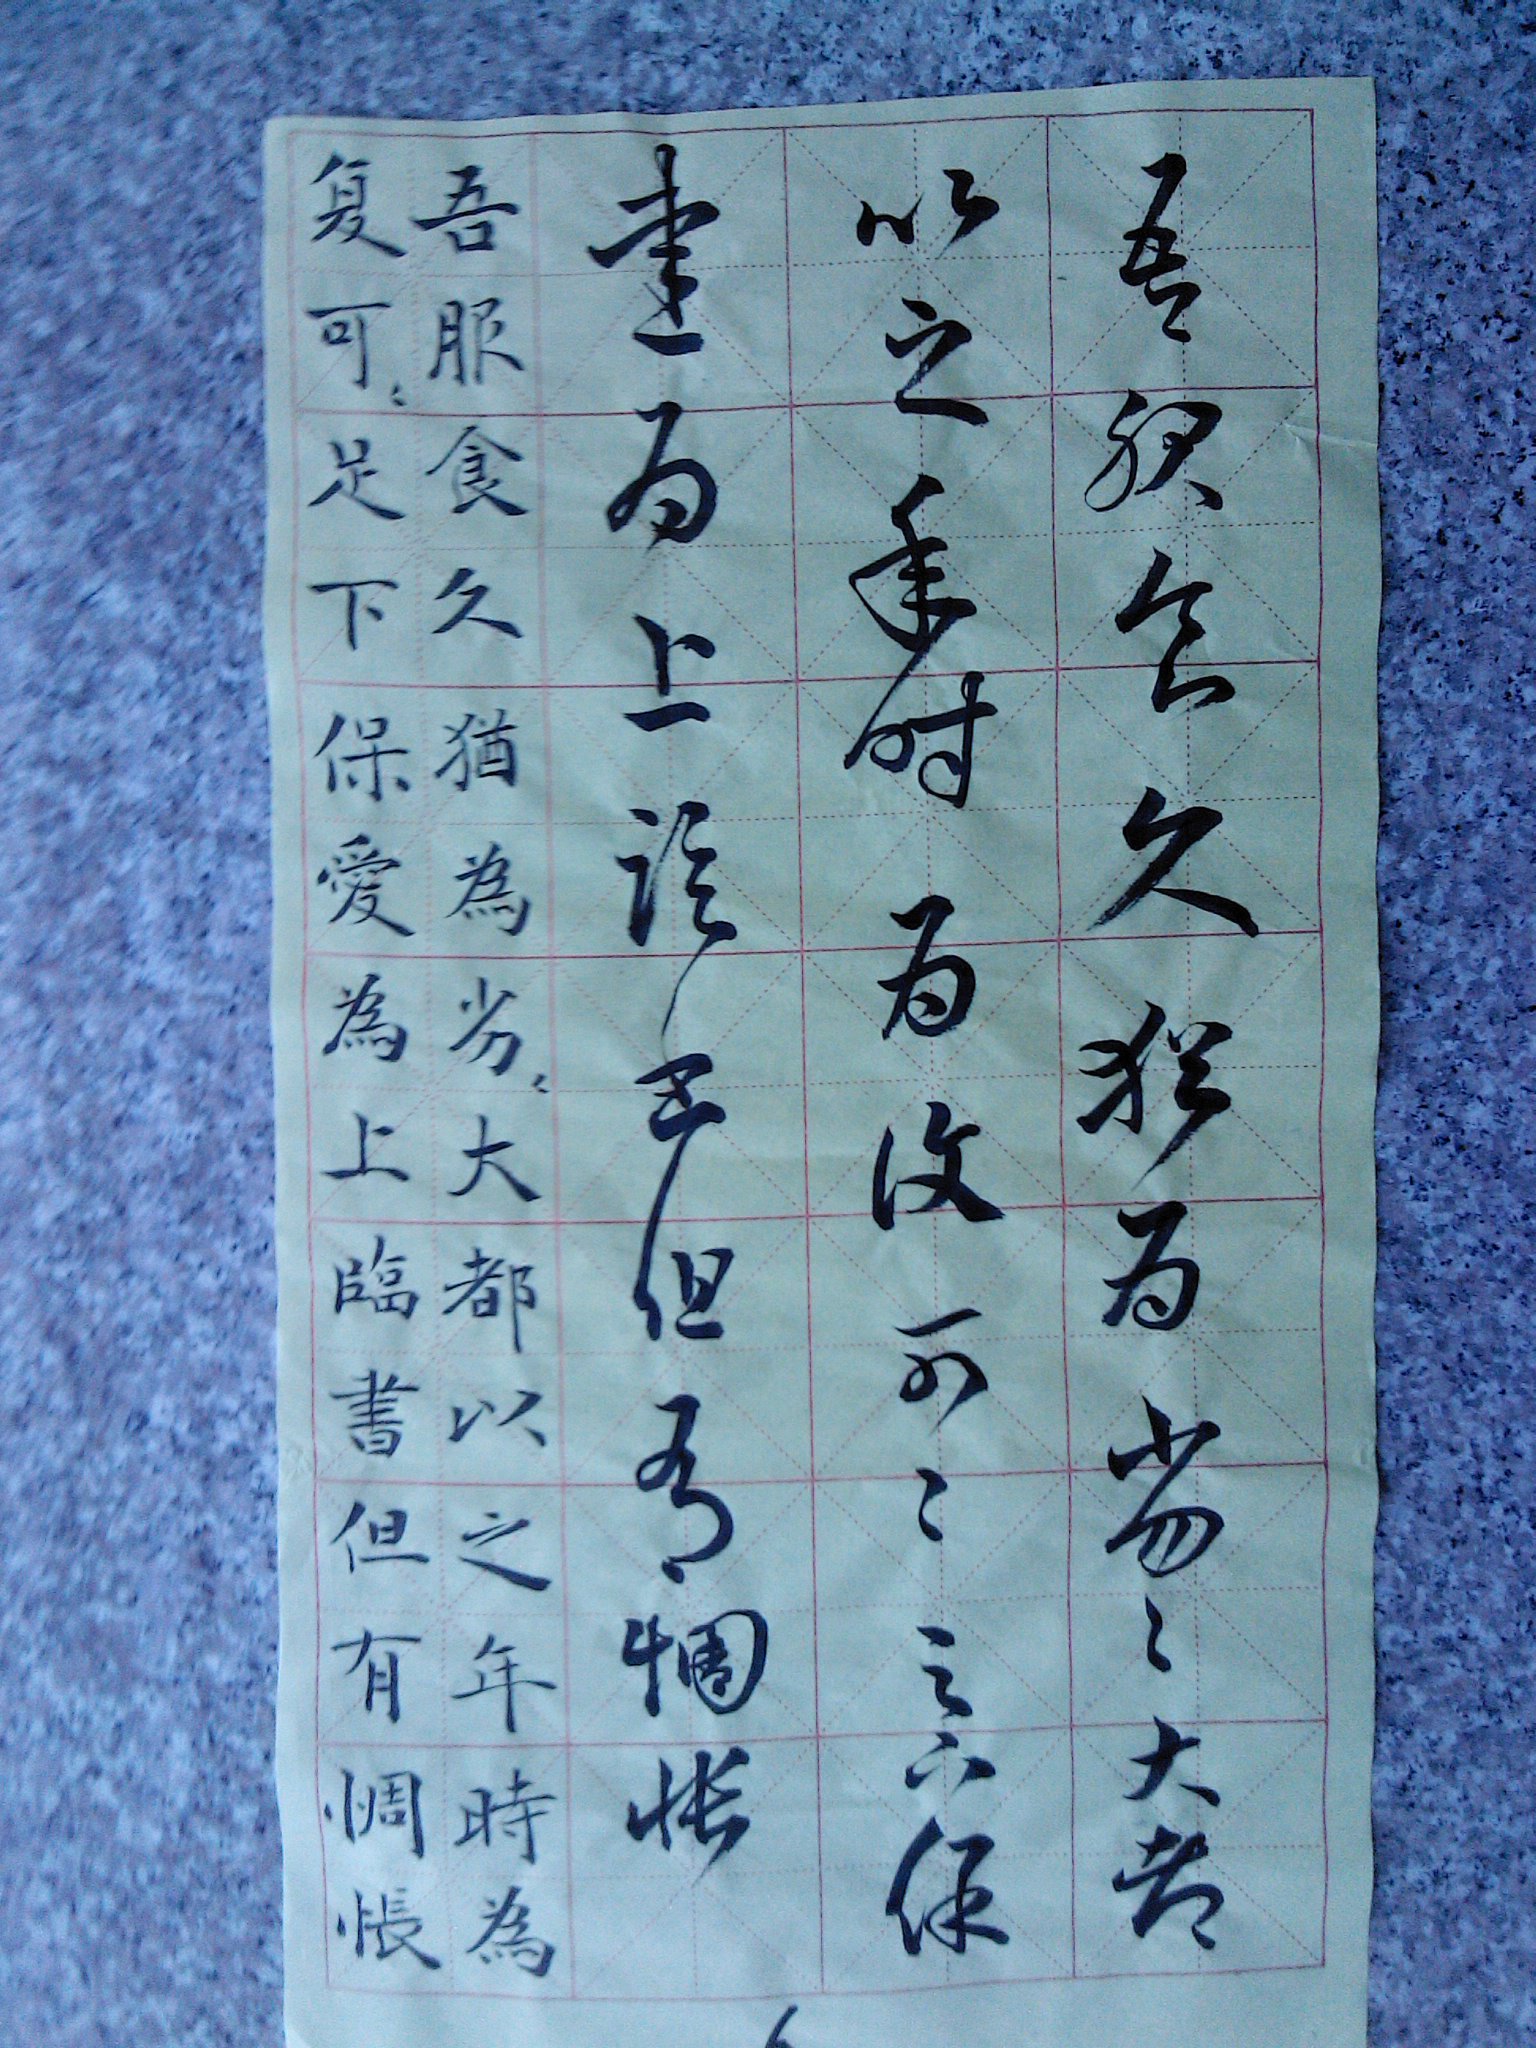 吾服食久猶为劣〻大都
以之年时为復可〻足下保
爱为上臨書但有惆悵
吾服食久猶為劣〻大都以之年時為
复可〻足下保愛為上臨書但有惆帳